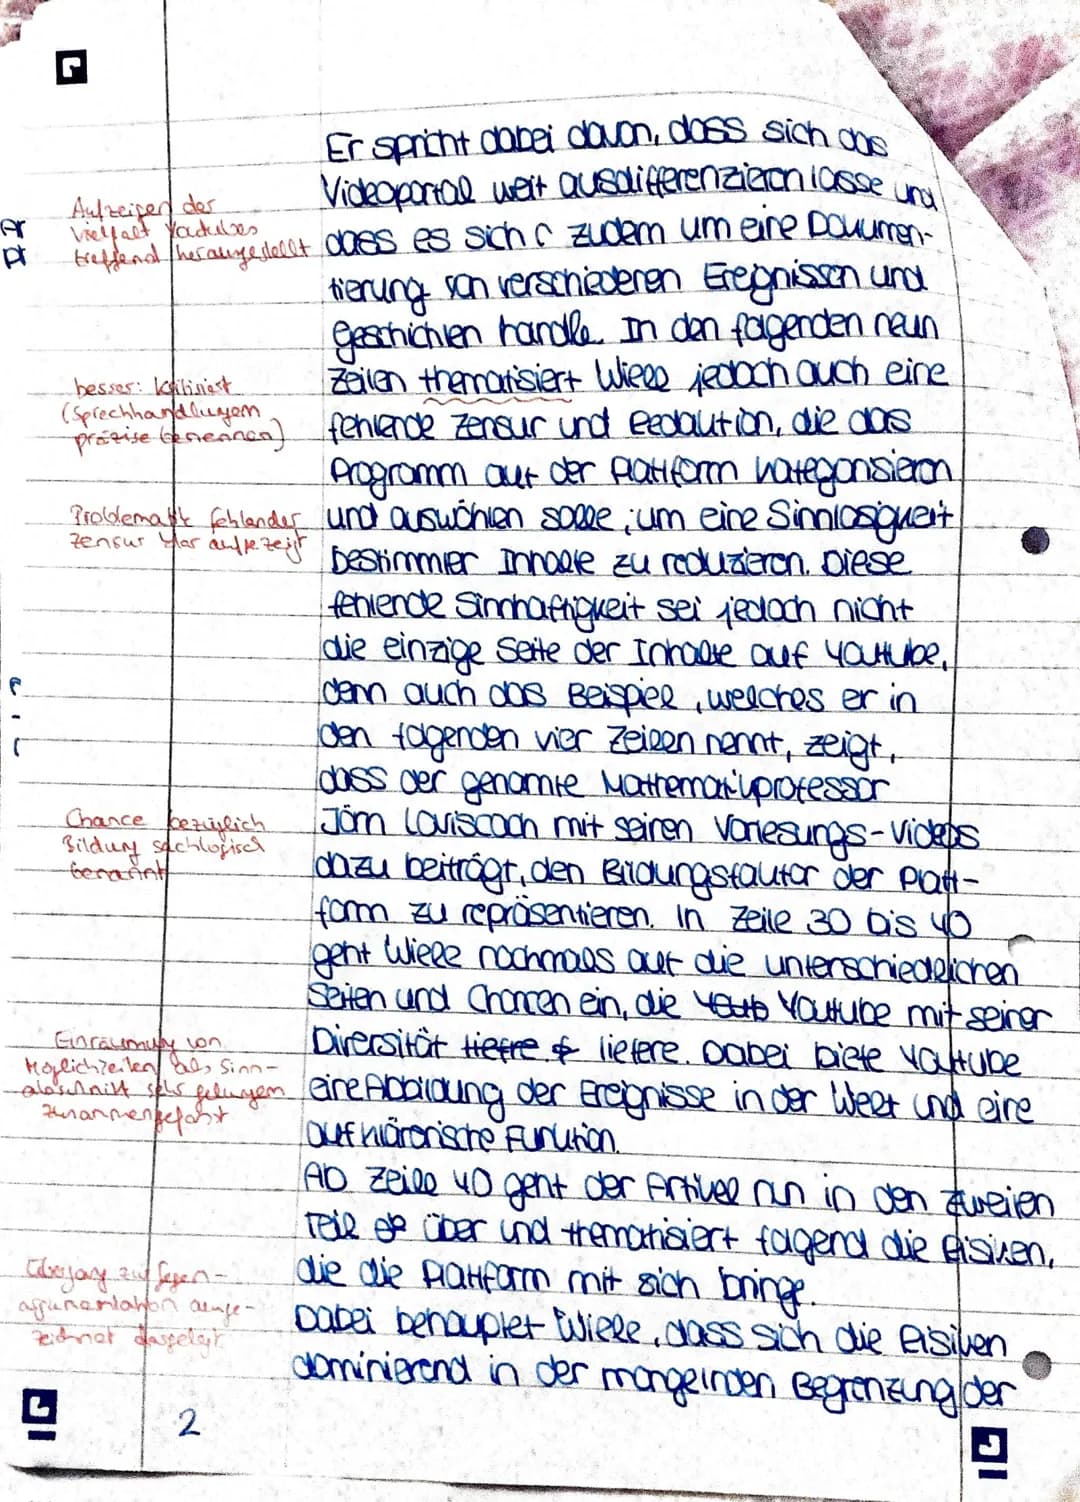 Er spricht dabei davon, dass sich das
Videoportal weit ausdifferenzieren lasse und
dass es sich zudem um eine Dokumen-
tierung von verschiedenen Ereignissen und
Geschichten handle. In den folgenden neun
Zeilen thematisiert Wiele jedoch auch eine
fehlende Zensur und Redaktion, die das
Programm auf der Plattform kategorisieren
und auswählen solle, um eine Sinnlosigkeit
bestimmter Inhalte zu reduzieren. Diese
fehlende Sinnhaftigkeit sei jedoch nicht
die einzige Seite der Inhalte auf Youtube,
denn auch das Beispiel, welches er in
den folgenden vier Zeilen nennt, zeigt,
dass der genannte Mathematikprofessor
Jörn Loviscach mit seinen Vorlesungs-Videos
dazu beiträgt, den Bildungsfaktor der Platt-
form zu repräsentieren. In Zeile 30 bis 40
geht Wiele nochmals auf die unterschiedlichen
Seiten und Chancen ein, die Youtube mit seiner
Diversität liefere. Dabei biete Youtube
eine Abbildung der Ereignisse in der Welt und eine
aufklärerische Funktion.
Ab Zeile 40 geht der Artikel nun in den zweiten
Teil über und thematisiert folgend die Risiken,
die die Plattform mit sich bringe.
Dabei behauptet Wiele, dass sich die Risiken
dominierend in der mangelnden Begrenzung der
2
Aufzeigen der
Vielfalt Youtubes
treffend herausgestellt
besser: kritisiert
(Sprechhandlungen
präzise benennen)
Problematik fehlender
Zensur klar aufgezeigt
Chance bezüglich
Bildung sachlogisch
benannt
Einräumung von
Möglichkeiten als Sinn-
abschnitt sehr gelungen
zusammengefasst
Übergang zur Gegen-
argumentation ausge-
zeichnet dargelegt